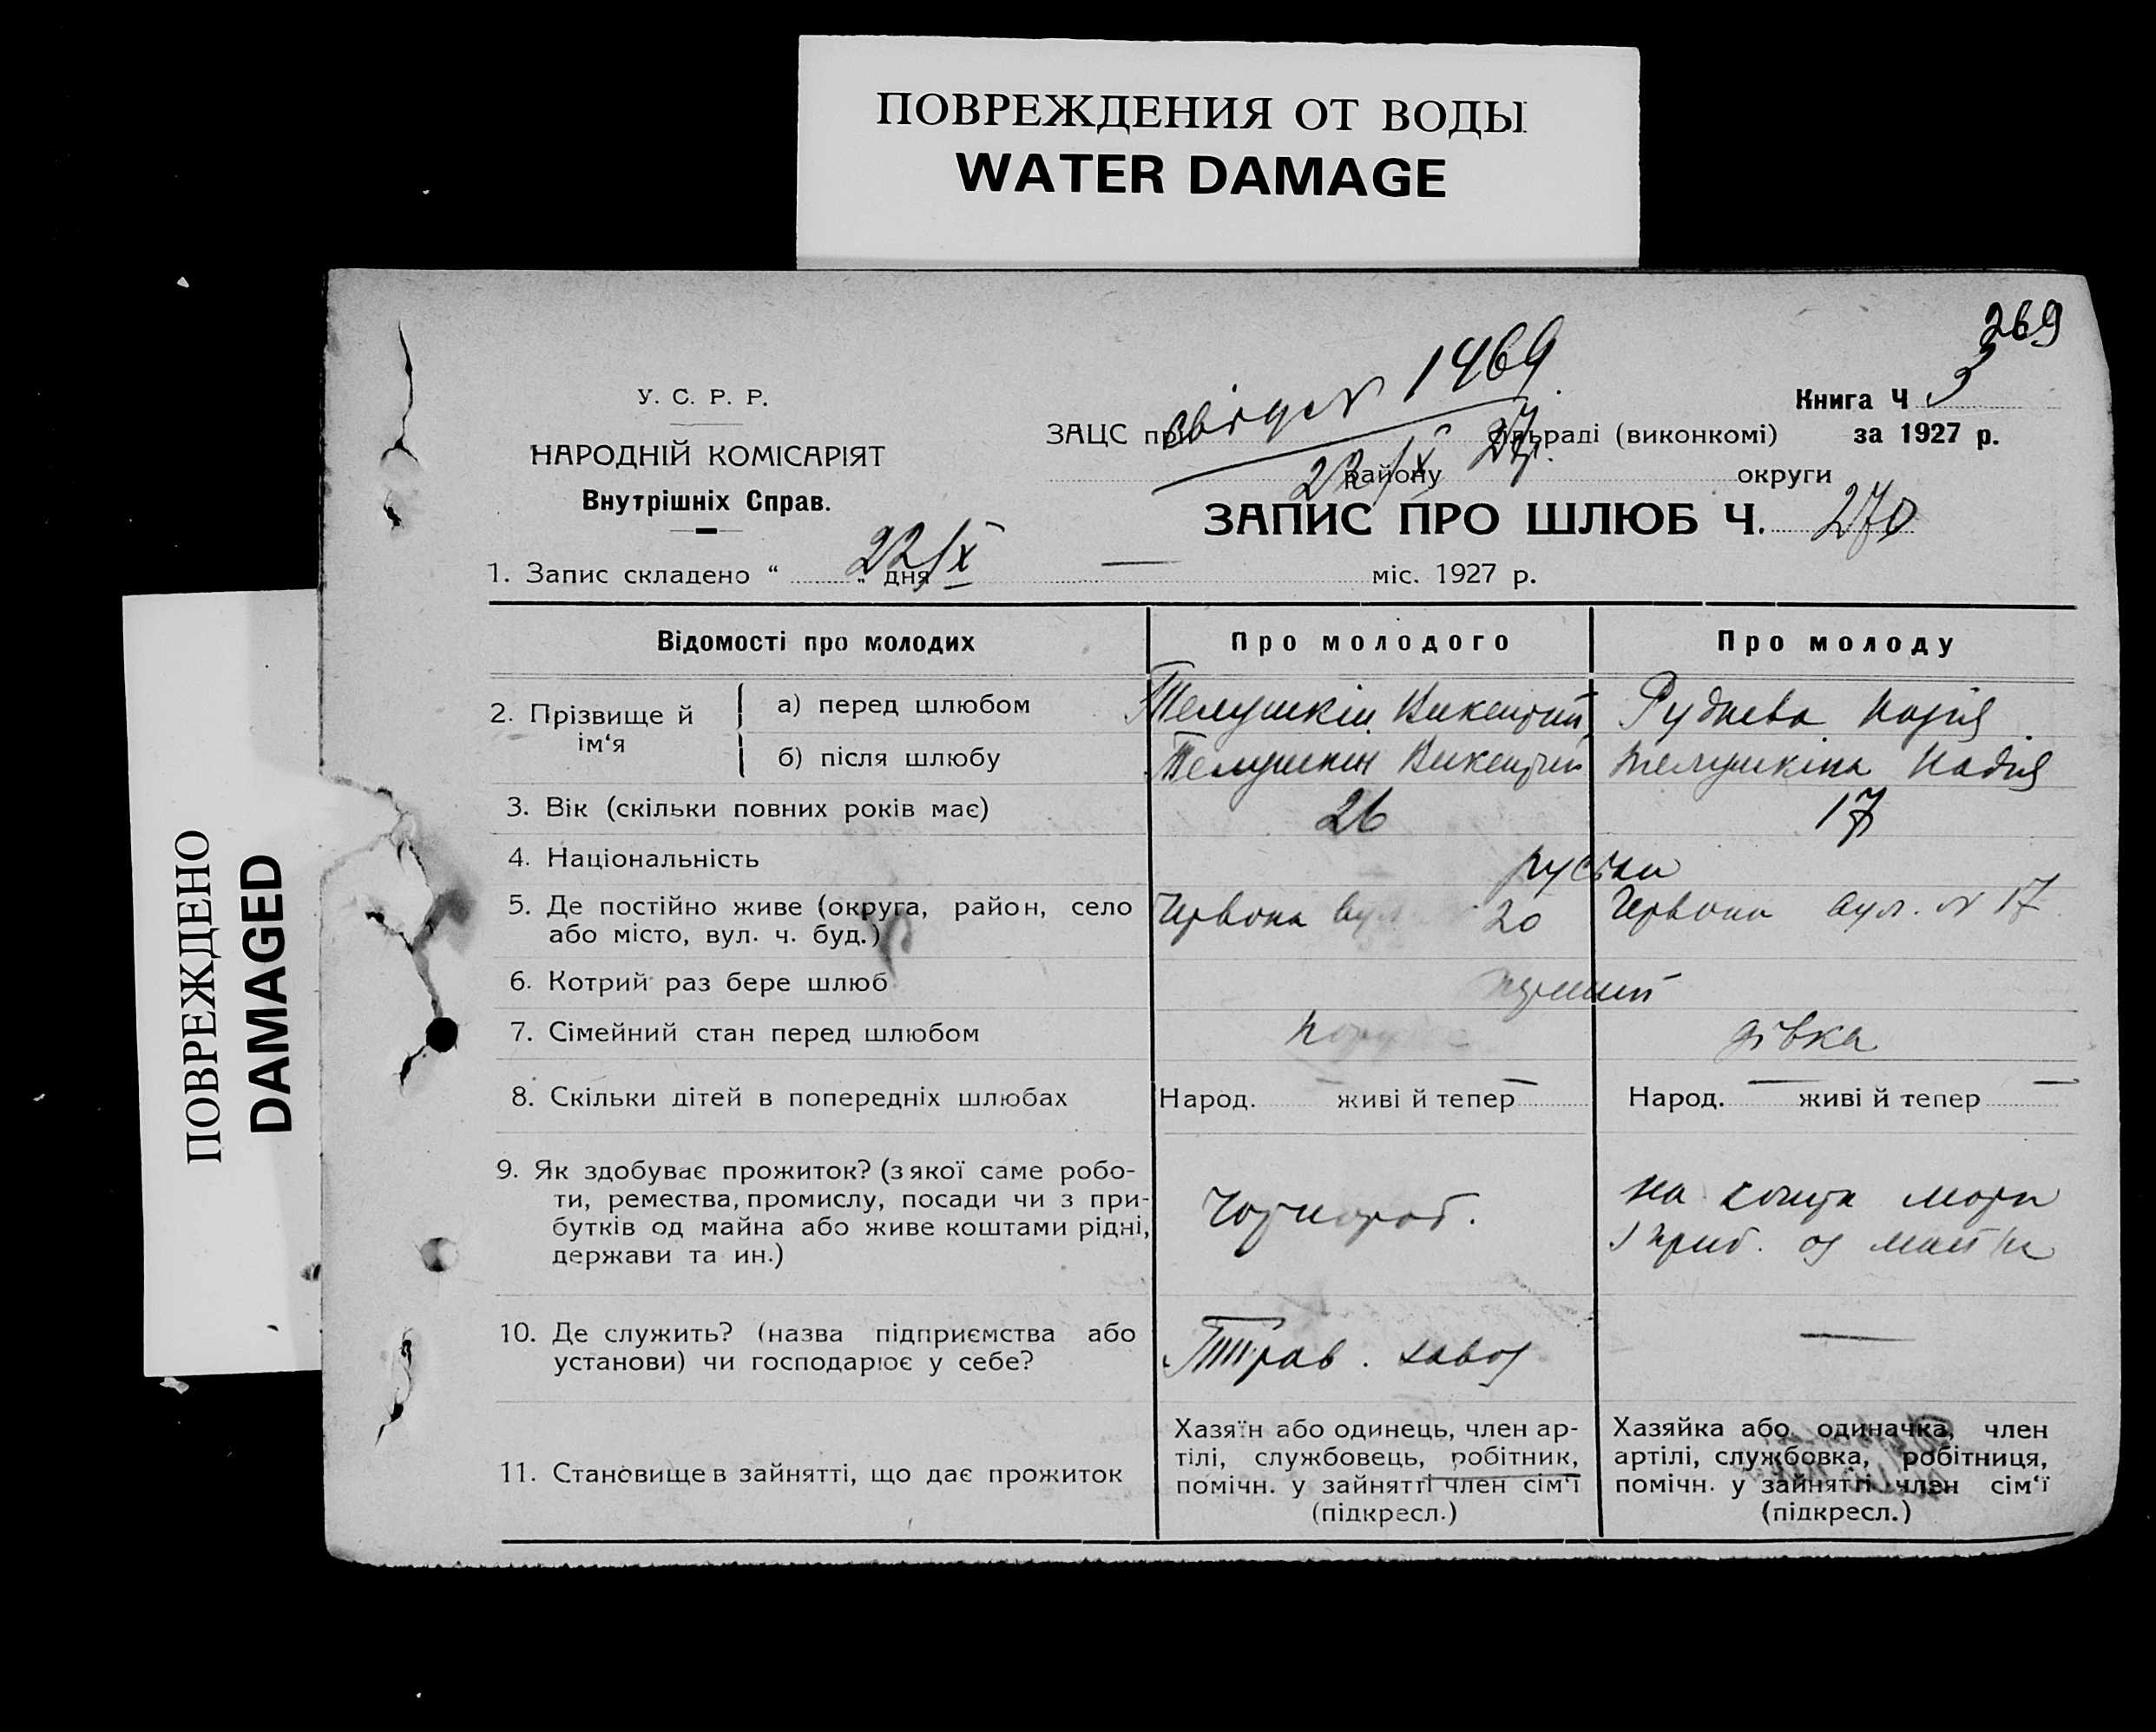 ПОВРЕЖДЕНИЯ ОТ ВОДЫ
WATER DAMAGE
ПОВРЕЖДЕНО
DAMAGED
269
У. С. Р. Р.
НАРОДНІЙ КОМІСАРІЯТ
Внутрішніх Справ.
1469
Книга Ч 3
ЗАЦС при сільраді (виконкомі) за 1927 р.
22/IX 27 р.
району округи
ЗАПИС ПРО ШЛЮБ Ч. 270
1. Запис складено “ „ дня 22/IX — міс. 1927 р.
Відомості про молодих Про молодого Про молоду
2. Прізвище й ім‘я
а) перед шлюбом Телушкін Викентий Руднева Надія
б) після шлюбу Телушкин Викентий Телушкіна Надія
3. Вік (скільки повних років має) 26 17
4. Національність руські
5. Де постійно живе (округа, район, село Червона вул 20 Червона вул. № 17
або місто, вул. ч. буд.)
6. Котрий раз бере шлюб перший
7. Сімейний стан перед шлюбом дівка
8. Скільки дітей в попередніх шлюбах Народ. — живі й тепер — Народ. — живі й тепер —
9. Як здобуває прожиток? (з якої саме робо-
ти, ремества, промислу, посади чи з при-
бутків од майна або живе коштами рідні,
держави та ин.)
Чорнороб.
на кошти
приб. од
10. Де служить? (назва підприємства або
установи) чи господарює у себе?
завод
—
11. Становище в зайнятті, що дає прожиток
Хазяїн або одинець, член ар-
тілі, службовець, робітник,
помічн. у зайнятті член сім‘ї
(підкресл.)
Хазяйка або одиначка, член
артілі, службовка, робітниця,
помічн. у зайнятті член сім‘ї
(підкресл.)